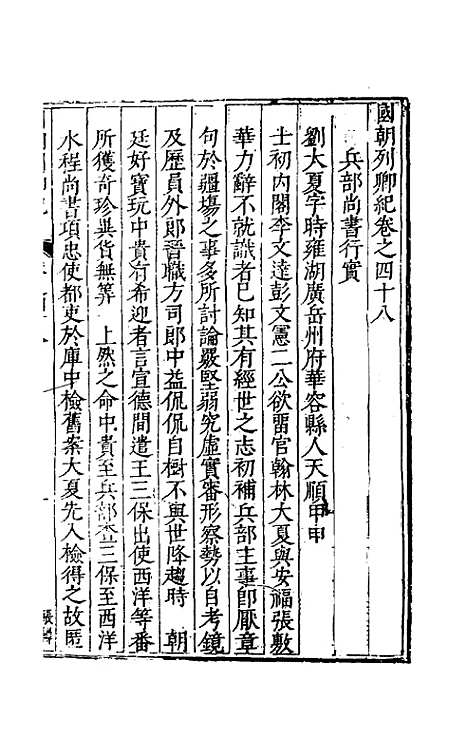 國朝列卿紀卷之四十八
兵部尚書行實
劉大夏字時雍湖廣岳州府華容縣人天順甲申
士初内閣李文達彭文憲二公欲畱官翰林大夏與安福張敷
華力辭不就識者已知其有經世之志初補兵部主事卽厭章
句於疆埸之事多所討論嚴堅弱究虛實審形察勢以自考鏡
及歷員外郎晉職方司郎中益侃侃自樹不與世降趨時 朝
廷好寶玩中貴有希迎者言宣德間遣王三保出使西洋等番
所獲奇珍異貨無筭 上然之命中貴至兵部查三保至西洋
水程尚書項忠使都吏於庫中檢舊案大夏先入檢得之故匿